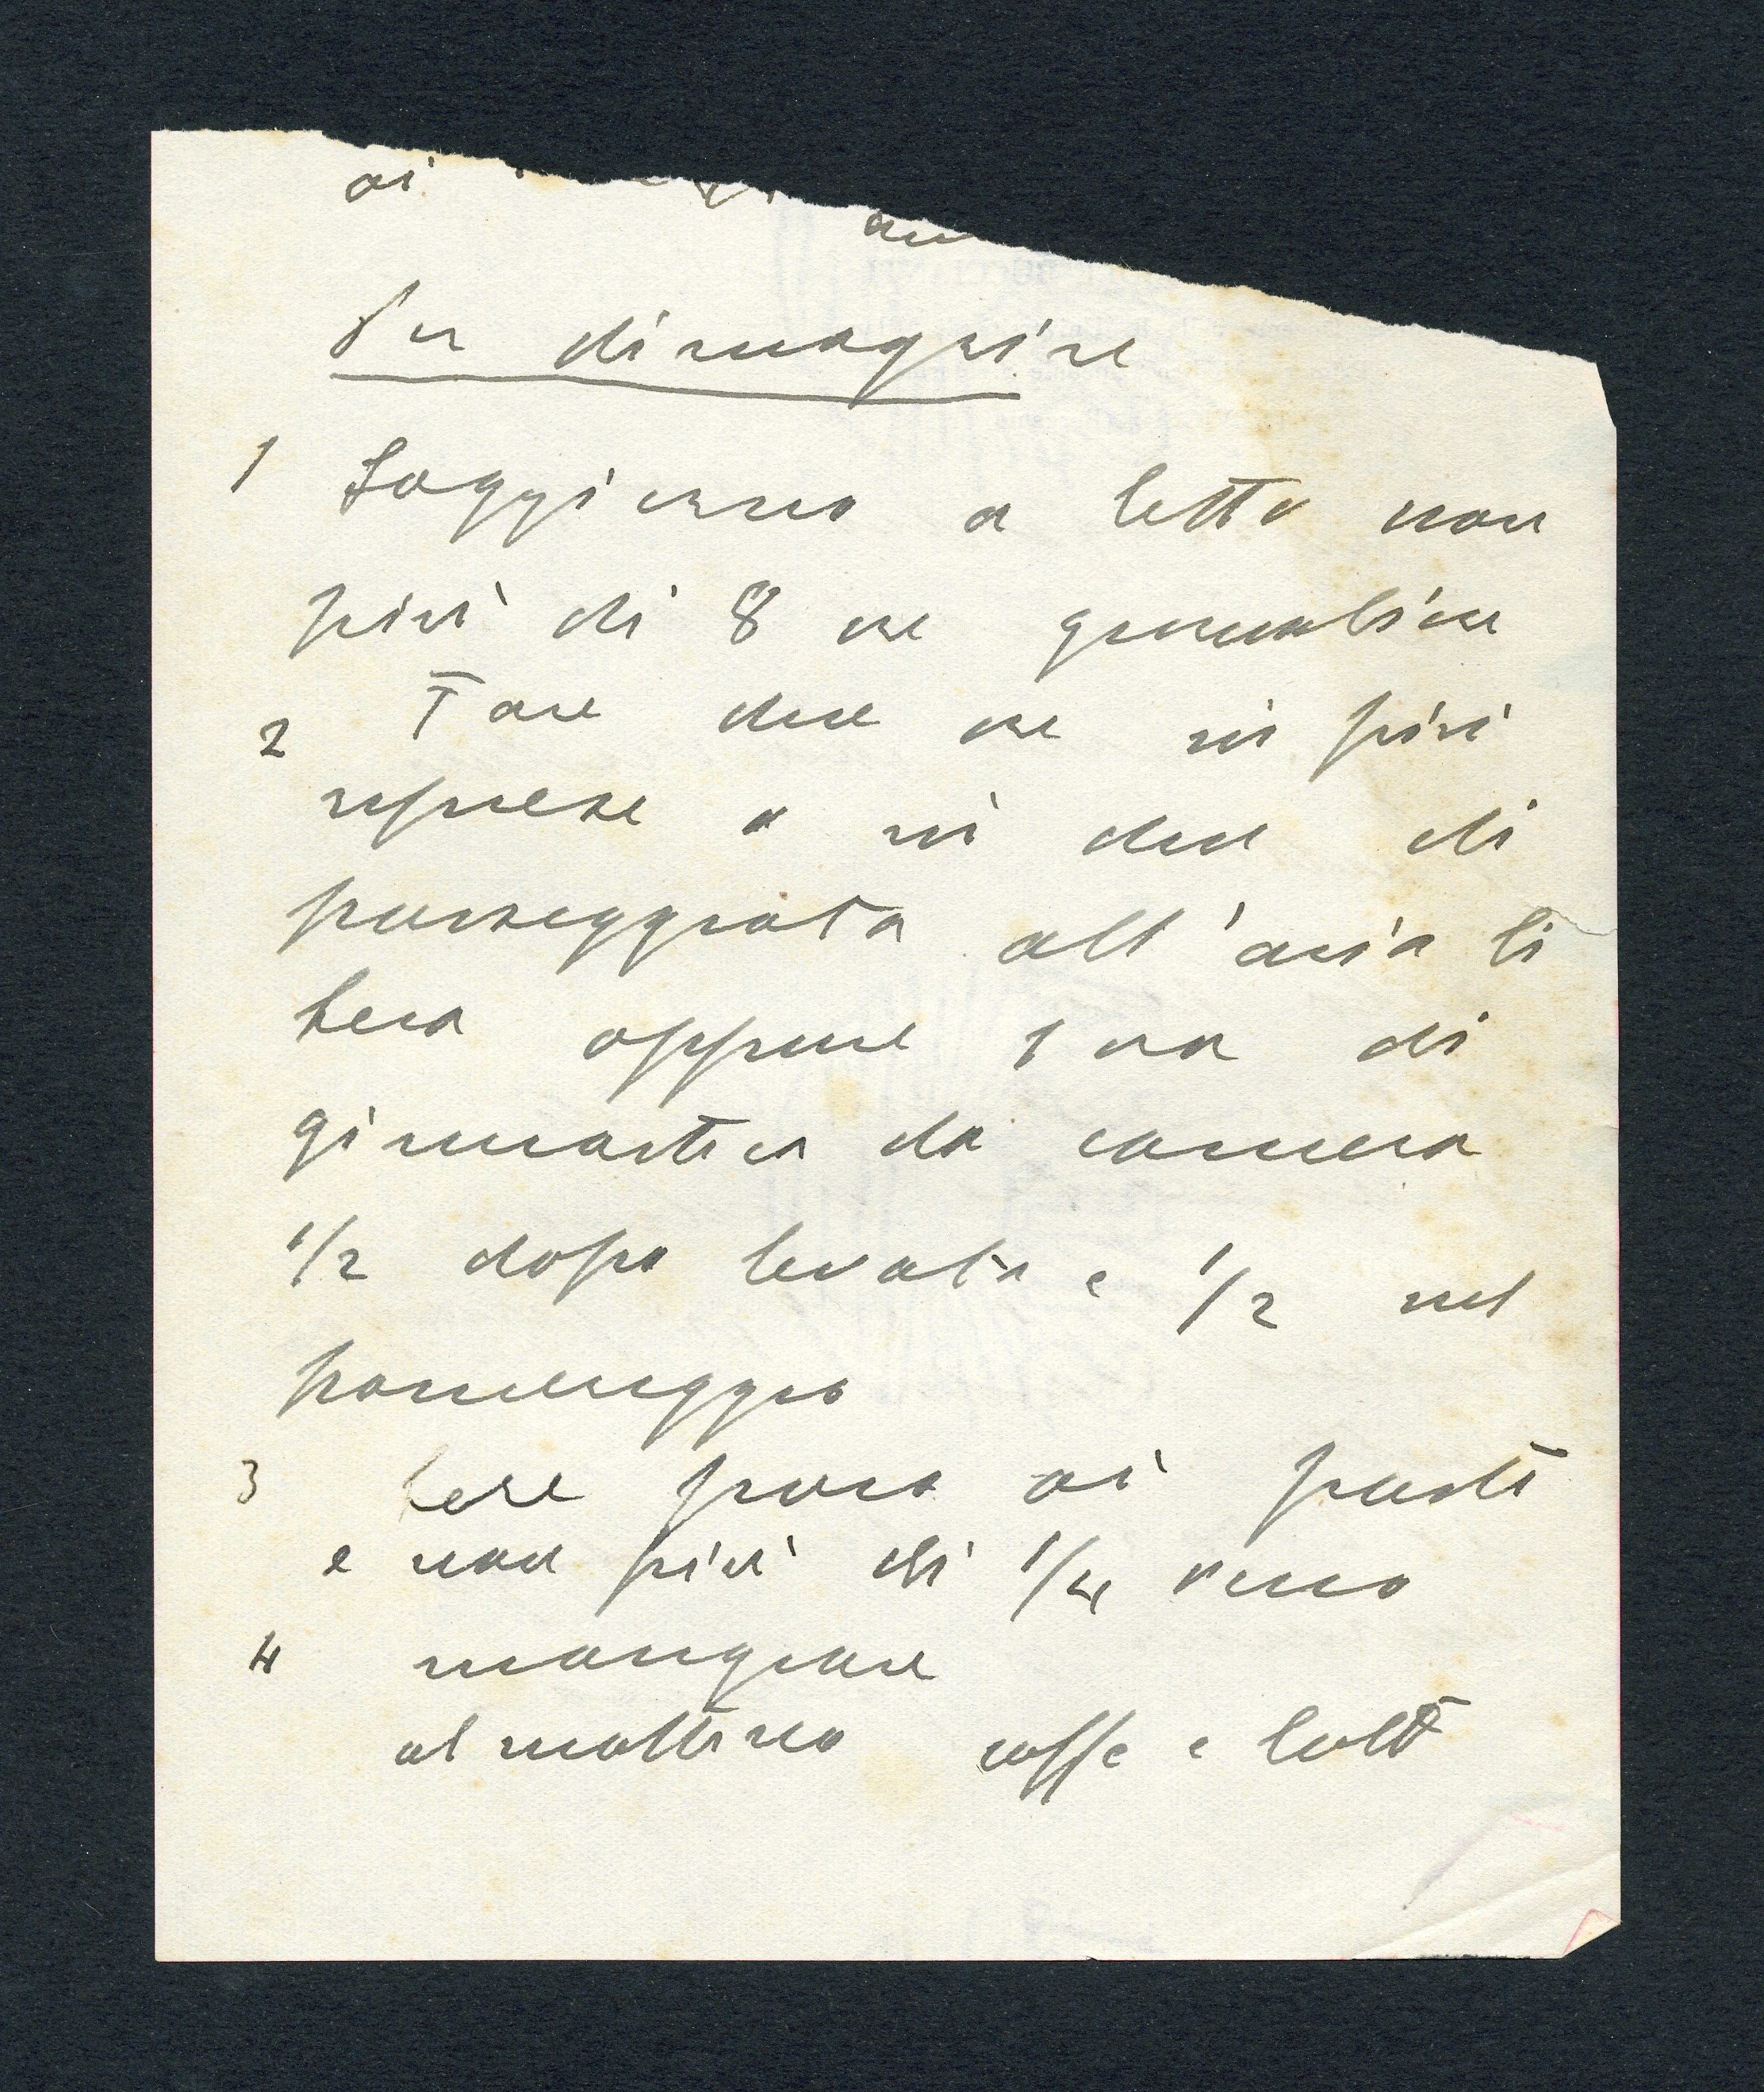 ai
Per dimagrire
1 Soggiorno a letto non
più di 8 ore
2 Fare due ore in più
riprese o in due di
passeggiata all'aria li
bera oppure 1 ora di
ginnastica da camera
1/2 dopo levata e 1/2 nel
pomeriggio
3 bere poco ai pasti
e non più di 1/4 vino
4 mangiare
al mattino caffe e latt